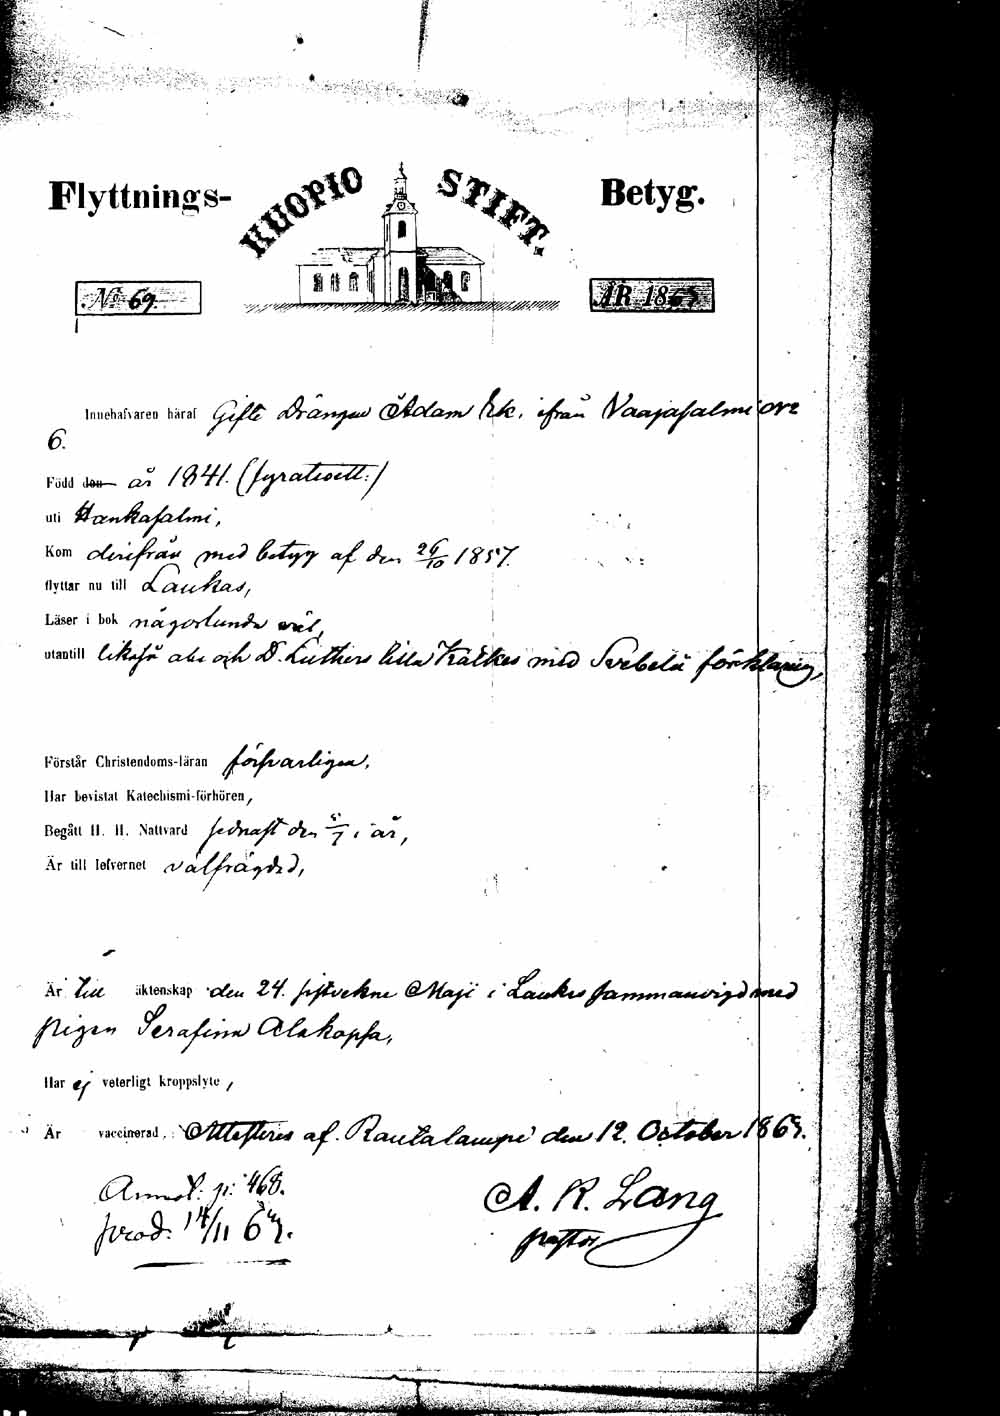 Flyttnings- KUOPIO STIFT. Betyg.
No 69. ÅR 1867
Innehafvaren häraf Gifte Drängen Adam Erk. ifrån Vaajasalmi No
6.
Född den år 1841. (fyratioett:)
uti Hankasalmi,
Kom derifrån med betyg af den 26/10 1857.
flyttar nu till Laukas,
Läser i bok någorlunda väl,
utantill likaså abc och D. Luthers lilla Kätkes med Svebelii förklaring,
Förstår Christendoms-läran försvarligen,
Har bevistat Katechismi-förhören,
Begått H. H. Nattvard sednast den /7 i år,
Är till lefvernet välfrägdad,
Är till äktenskap den 24. sistvekne Maji i Laukas sammanvigd med
pigan Serafina Alakopsa,
Har ej veterligt kroppslyte,
Är vaccinerad. Attesteras af. Rautalampi den 12. October 1867.
Anmäl: p: 468. A. R. Lang
prod: 14/11 67. pastor